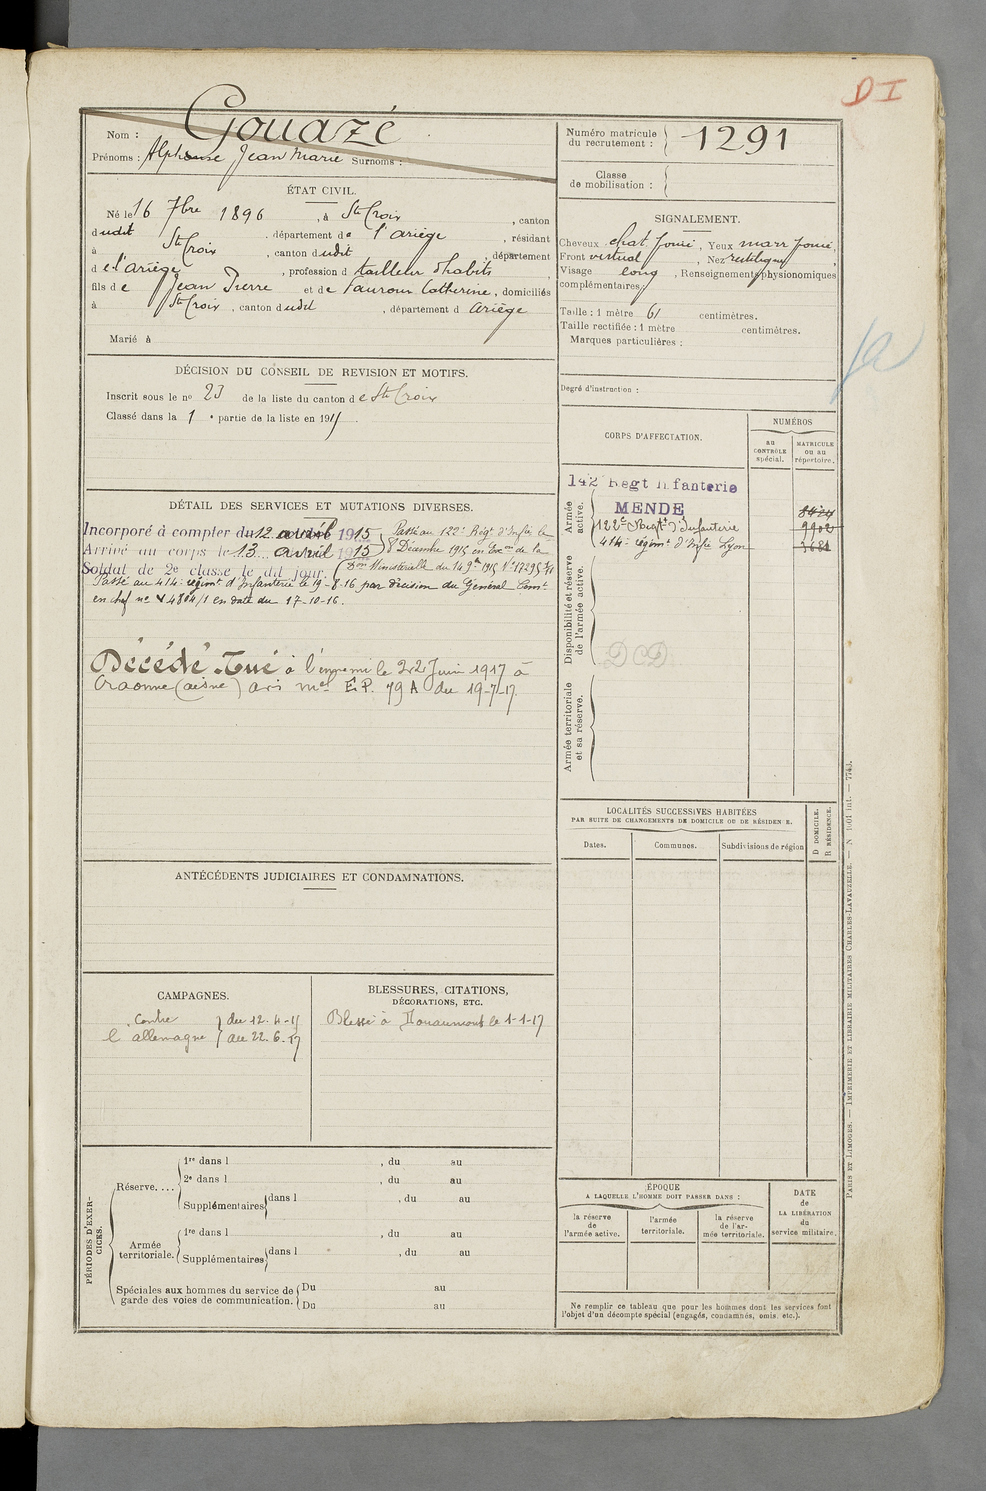 DI
Nom : Gouazé
Prénoms : Alphonse Jean Marie Surnoms :
Numéro matricule du recrutement : 1291
Classe de mobilisation :
ÉTAT CIVIL.
Né le 16 7bre 1896, à Ste Croix, canton
dudit, département de l'Ariège, résidant
à Ste Croix, canton dudit, département
de l'ariège, profession d tailleur d'habits
fils de Jean Pierre et de Catherine, domiciliés
à Ste Croix, canton dudit, département d Ariège
Marié à
SIGNALEMENT.
Cheveux chat. foncé, Yeux marr foncé,
Front vertical, Nez rectiligne,
Visage long, Renseignements physionomiques
complémentaires :
Taille : 1 mètre 61 centimètres.
Taille rectifiée : 1 mètre centimètres.
Marques particulières :
Degré d'instruction :
DÉCISION DU CONSEIL DE REVISION ET MOTIFS.
Inscrit sous le no 23 de la liste du canton de Ste Croix
Classé dans la 1e partie de la liste en 1915.
CORPS D'AFFECTATION.
NUMÉROS
au CONTRÔLE spécial.
MATRICULE ou au répertoire.
Armée active.
142e Regt Infanterie
MENDE
122e Regt d'Infanterie 9902
414e régimt d'Infie Lyon
Disponibilité et réserve de l'armée active.
DCD
Armée territoriale et sa réserve.
DÉTAIL DES SERVICES ET MUTATIONS DIVERSES.
Incorporé à compter du 12 avril 1915
Arrivé au corps le 13 avril 1915
Soldat de 2e classe le dit jour.
Passé au 122e Régt d'Infie le
8 Décembre 1915 en Exon de la
Don Ministérielle du 14 9bre 1915
Passé au 414e régimt d'Infanterie le 19-8-16 par décision du Général Comt
en chef no 4804/1 en date du 17-10-16.
Décédé. Tué à l'ennemi le 22 Juin 1917 à
Craonne (aisne) avis mel E.P. 79 A du 19-7-17.
LOCALITÉS SUCCESSIVES HABITÉES
PAR SUITE DE CHANGEMENTS DE DOMICILE OU DE RÉSIDENCE.
Dates.
Communes.
Subdivisions de région
D DOMICILE.
R RÉSIDENCE.
ANTÉCÉDENTS JUDICIAIRES ET CONDAMNATIONS.
CAMPAGNES.
Contre l'allemagne
du 12.4.15
au 22.6.17
BLESSURES, CITATIONS,
DÉCORATIONS, ETC.
Blessé à Douaumont le 1-1-17
PÉRIODES D'EXERCICES.
Réserve....
1re dans l , du au
2e dans l , du au
Supplémentaires dans l , du au
Armée territoriale.
1re dans l , du au
Supplémentaires dans l , du au
Spéciales aux hommes du service de garde des voies de communication.
Du au
Du au
ÉPOQUE
A LAQUELLE L'HOMME DOIT PASSER DANS :
la réserve de l'armée active.
l'armée territoriale.
la réserve de l'armée territoriale.
DATE de LA LIBÉRATION du service militaire.
Ne remplir ce tableau que pour les hommes dont les services font
l'objet d'un décompte spécial (engagés, condamnés, omis, etc.).
PARIS ET LIMOGES. — IMPRIMERIE ET LIBRAIRIE MILITAIRES CHARLES-LAVAUZELLE.